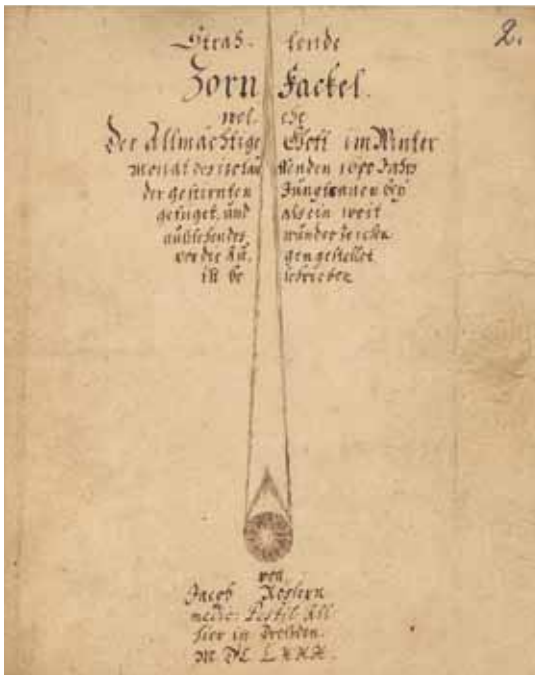 2.
Strah- lende
Zorn Fackel.
wel- che
Der Allmächtige Gott im Winter
monat des itzlau ffenden 1680 Jahrs
der gestirnten Jungfrauen bey
gefüget, und als ein weit
außsehendes wunderzeichen
vor die Au. gen gestellet
ist be schrieben
von
Jacob
medic: Pestil: All
hier in Dreßden.
M DC LXXX.